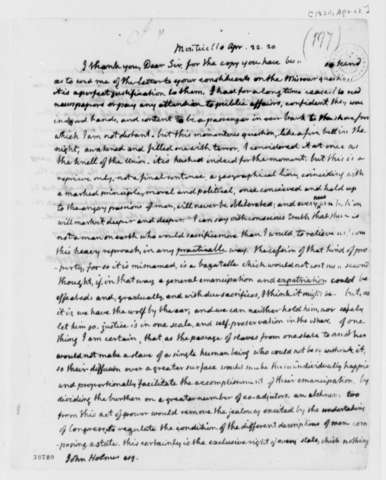 (197)
Monticello Apr. 22. 20
I thank you, Dear Sir, for the copy you have been so kind
as to send me of the letter to your constituents on the Missouri question.
it is a perfect justification to them. I had for a long time ceased to read
newspapers or pay any attention to public affairs, confident they were
in good hands, and content to be a passenger in our bark to the shore from
which I am not distant. but this momentous question, like a fire bell in the
night, awakened and filled me with terror. I considered it at once as
the knell of the Union. it is hushed indeed for the moment. but this is a
reprieve only, not a final sentence. a geographical line, coinciding with
a marked principle, moral and political, once conceived and held up
to the angry passions of men, will never be obliterated; and every new irritation
will mark it deeper and deeper. I can say with conscious truth that there is
not a man on earth who would sacrifice more than I would, to relieve us from
this heavy reproach, in any practicable way. the cession of that kind of pro-
perty, for so it is misnamed, is a bagatelle which would not cost me a second
thought, if, in that way, a general emancipation and expatriation could be
effected: and, gradually, and with due sacrifices, I think it might be. but, as
it is, we have the wolf by the ear, and we can neither hold him, nor safely
let him go. justice is in one scale, and self-preservation in the other. of one
thing I am certain, that as the passage of slaves from one state to another
would not make a slave of a single human being who would not be so without it,
so their diffusion over a greater surface would make them individually happier
and proportionally facilitate the accomplishment of their emancipation, by
dividing the burthen on a greater number of co-adjutors. an abstinence too
from this act of power would remove the jealousy excited by the undertaking
of Congress, to regulate the condition of the different descriptions of men com-
posing a state. this certainly is the exclusive right of every state, which nothing
John Holmes esq.